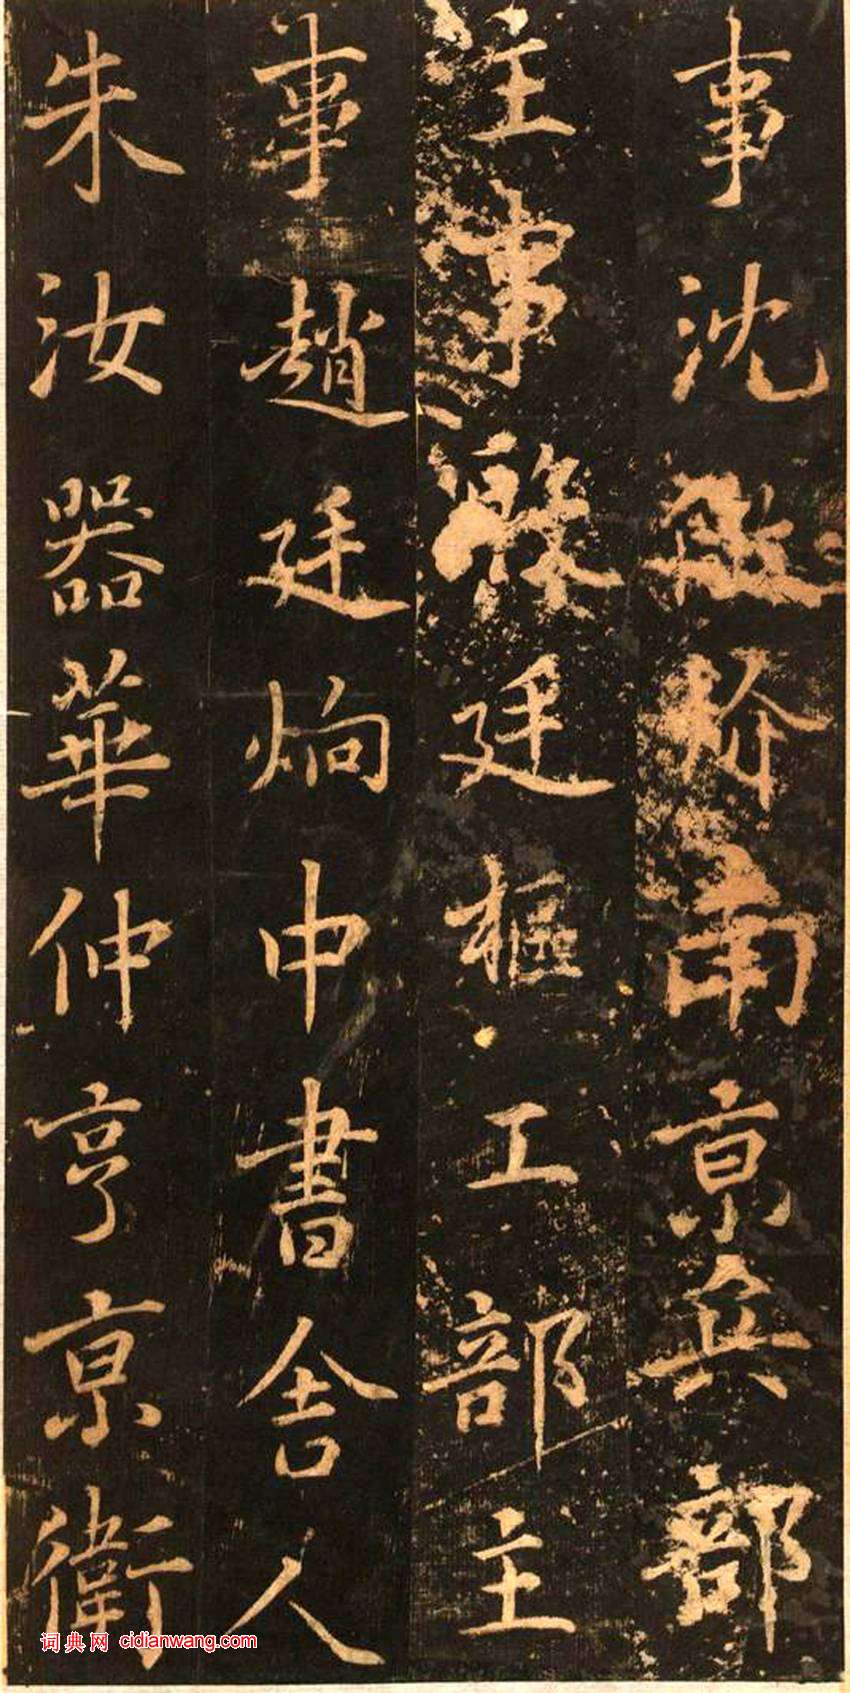 事沈 南京兵部
主事殷廷樞工部主
事趙廷炯中書舍人
朱汝器華仲亨京衛
词典网 cidianwang.com